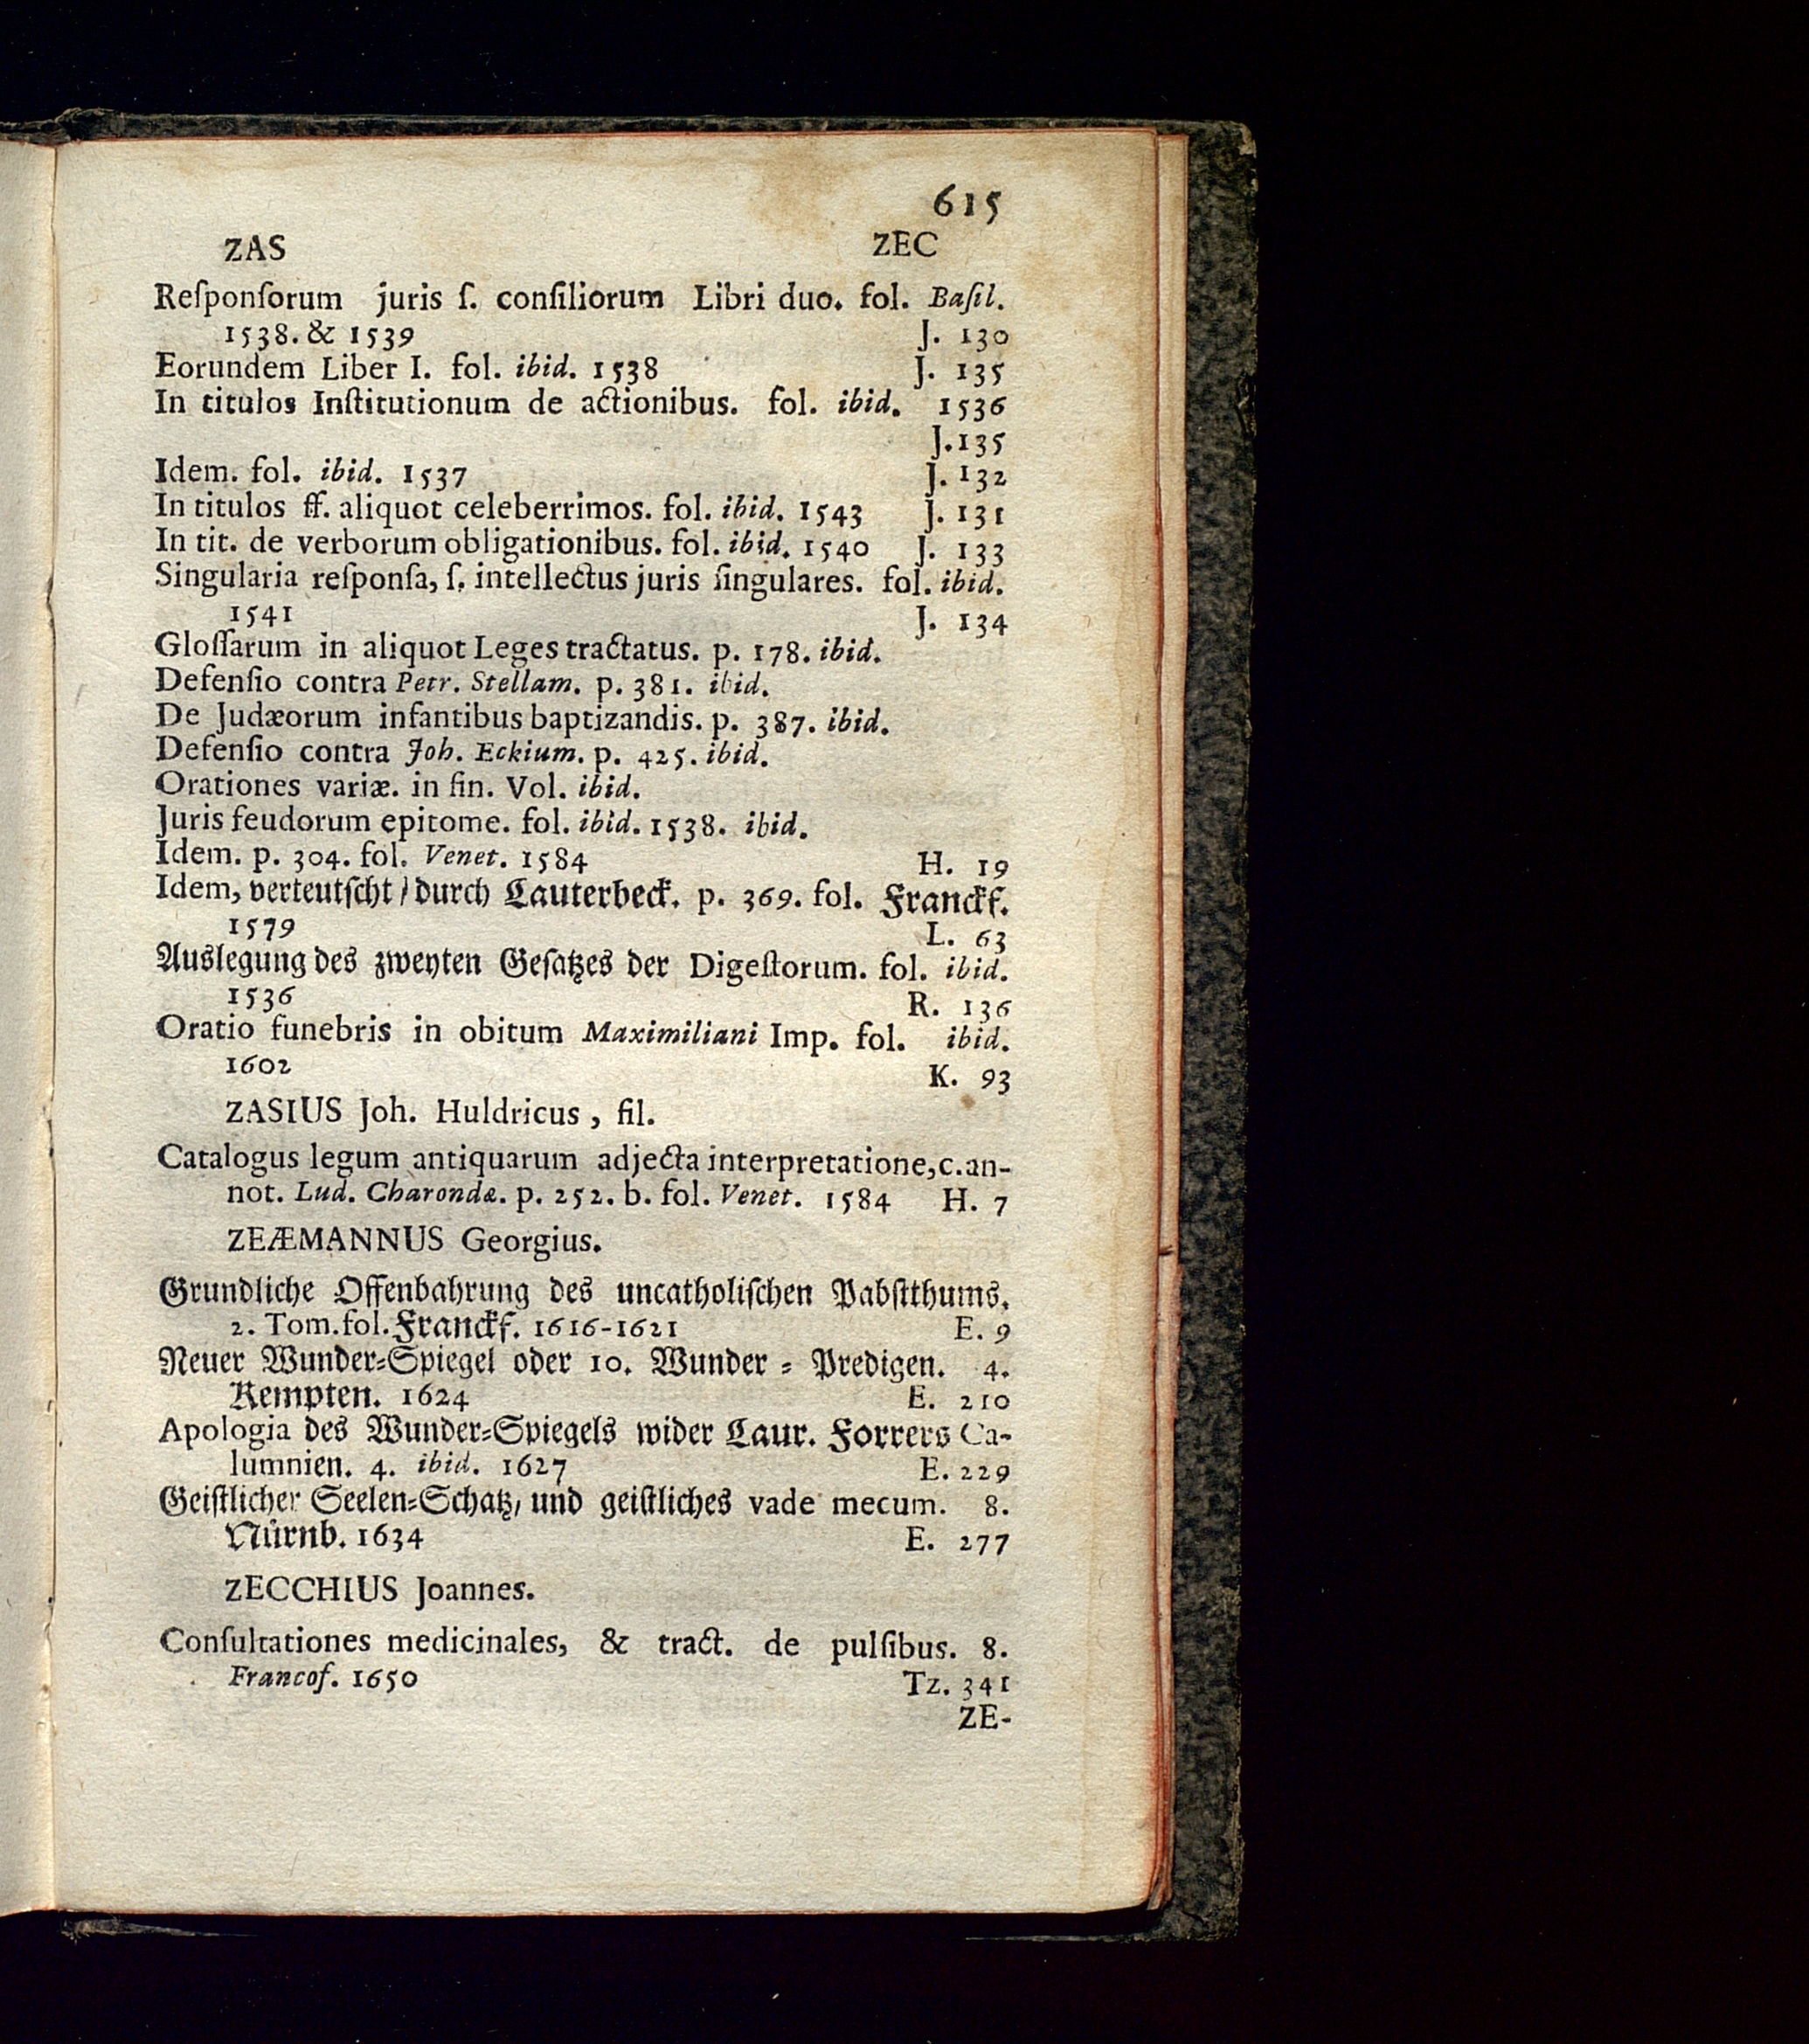 615
ZAS ZEC
Reſponſorum juris ſ. conſiliorum Libri duo. fol. Baſil.
1538. & 1539 J. 130
Eorundem Liber I. fol. ibid. 1538 J. 135
In titulos Inſtitutionum de actionibus. fol. ibid. 1536
J. 135
Idem. fol. ibid. 1537 J. 132
In titulos ff. aliquot celeberrimos. fol. ibid. 1543 J. 131
In tit. de verborum obligationibus. fol. ibid. 1540 J. 133
Singularia reſponſa, ſ. intellectus juris ſingulares. fol. ibid.
1541 J. 134
Gloſſarum in aliquot Leges tractatus. p. 178. ibid.
Defenſio contra Petr. Stellam. p. 381. ibid.
De Judæorum infantibus baptizandis. p. 387. ibid.
Defenſio contra Joh. Eckium. p. 425. ibid.
Orationes variæ. in fin. Vol. ibid.
Juris feudorum epitome. fol. ibid. 1538. ibid.
Idem. p. 304. fol. Venet. 1584 H. 19
Idem, verteutſcht / durch Lauterbeck. p. 369. fol. Franckf.
1579 L. 63
Auslegung des zweyten Geſatzes der Digeſtorum. fol. ibid.
1536 R. 136
Oratio funebris in obitum Maximiliani Imp. fol. ibid.
1602 K. 93
ZASIUS Joh. Huldricus, fil.
Catalogus legum antiquarum adjecta interpretatione, c. an-
not. Lud. Charondæ. p. 252. b. fol. Venet. 1584 H. 7
ZEÆMANNUS Georgius.
Grundliche Offenbahrung des uncatholiſchen Pabſtthums.
2. Tom. fol. Franckf. 1616-1621 E. 9
Neuer Wunder=Spiegel oder 10. Wunder = Predigen. 4.
Kempten. 1624 E. 210
Apologia des Wunder=Spiegels wider Laur. Forrers Ca-
lumnien. 4. ibid. 1627 E. 229
Geiſtlicher Seelen=Schatz, und geiſtliches vade mecum. 8.
Nürnb. 1634 E. 277
ZECCHIUS Joannes.
Conſultationes medicinales, & tract. de pulſibus. 8.
Francof. 1650 Tz. 341
ZE-